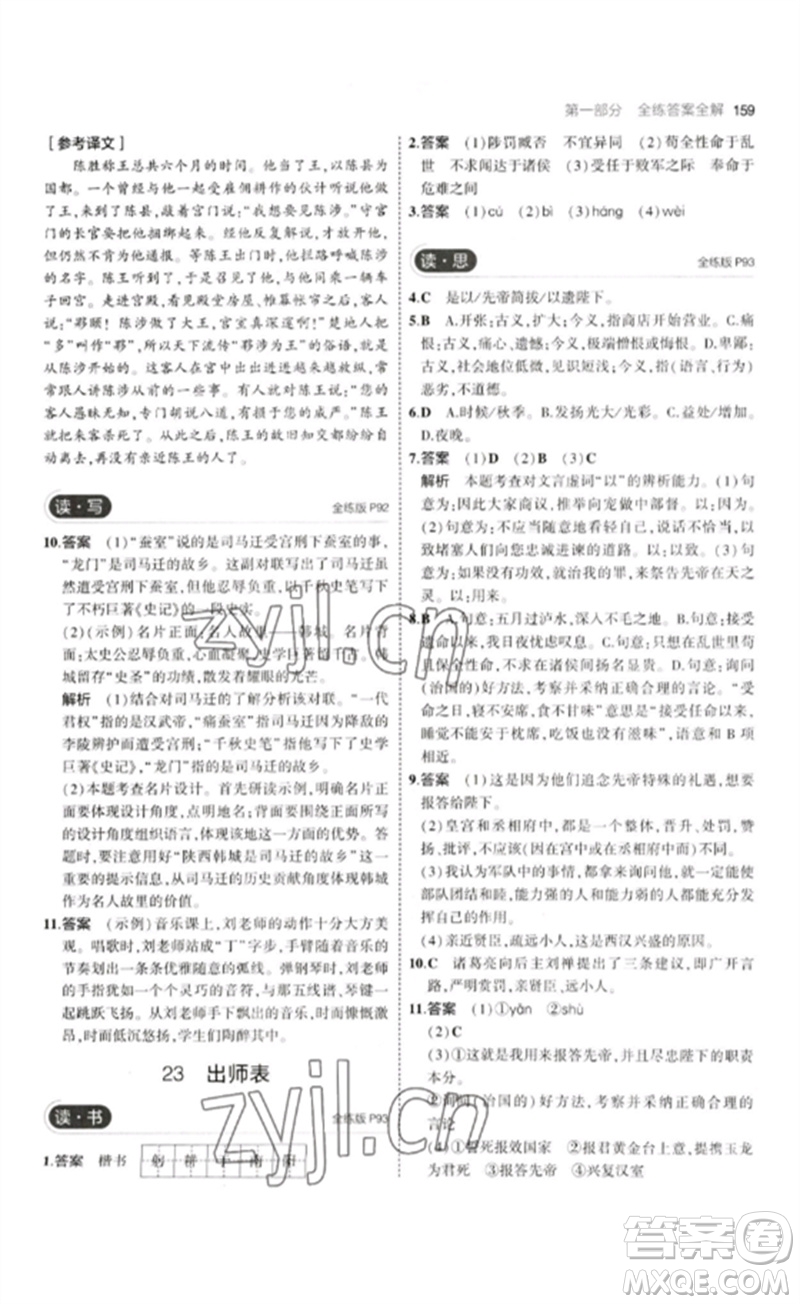 第一部分 全练答案全解 159
[参考译文]
陈胜称王总共六个月的时间。他当了王，以陈县为
国都。一个曾经与他一起受雇佣耕作的伙计听说他做
了王，来到了陈县，敲着宫门说：“我想要见陈涉。”守宫
门的长官要把他捆绑起来。他反复辩解，才放开他，但
仍然不肯为他通报。等陈王出门，他拦路呼喊陈涉
的名字。陈王听到了，才召见他，与他同乘一辆车
子回宫。走进宫殿，看见殿堂房屋、帷幕帐帘，客人
说：“夥颐！陈涉做了大王，宫室真深邃啊！”楚地人
把“多”叫作“夥”，所以天下流传“夥涉为王”的俗语，就
从陈涉开始的。这客人在宫中出出进进越来越放纵，常
常跟人讲陈涉从前的一些事。有人就对陈王说：“您的
客人愚昧无知，专门胡说八道，有损于您的威严。”陈王
就把来客杀死了。从此，陈王的故旧知交都纷纷
自动离去，再没有亲近陈王的人了。
读·写 全练版 P92
10.答案 (1)“蚕室”说的是司马迁受宫刑下蚕室的事，
“龙门”是司马迁的故乡。这副对联写出了司马迁
虽然遭受宫刑，但他忍辱负重，以千秋史笔写下了
不朽巨著《史记》的一段史实。
(2)(示例)名片正面：名人故里——韩城。名片背
面：太史公忍辱负重，心血凝聚《史记》；韩城人承
载“史圣”的功绩，散发着耀眼的光芒。
解析 (1)结合对司马迁的了解分析该对联。“一代
君权”指的是汉武帝，“痛蚕室”指司马迁因为降敌的
李陵辨护而遭受宫刑；“千秋史笔”指写下了史学
巨著《史记》，“龙门”指司马迁的故乡。
(2)本题考查名片设计。首先研读示例，明确名片正
面要体现设计角度，点明地名；名片背面要围绕正面
的设计角度组织语言，体现该地这一方面的优势。答
题时，要注意围绕“陕西韩城是司马迁的故乡”这一
角度，用司马迁的历史贡献和影响力来体现韩城
作为名人故里的价值。
11.答案 (示例)音乐课上，刘老师的动作十分大方美
观。唱歌时，刘老师站成“丁”字步，手臂随着音乐的
节奏划出一条条优雅光滑的曲线。弹钢琴时，刘老师
的手指就像一个个灵巧的音符，与钢琴键碰撞在一
起跳跃飞扬。从刘老师手下飘出的音乐，时而激
昂，时而低沉悠扬，学生们陶醉其中。
23 出师表
读·书 全练版 P93
1.答案 楷书 躬 耕 于 南 阳
2.答案 (1)陟罚臧否 不宜异同 (2)苟全性命于乱
世 不求闻达于诸侯 (3)受任于败军之际 奉命于
危难之间
3.答案 (1)cú (2)bì (3)háng (4)wèi
读·思 全练版 P93
4.C 是以/先帝简拔/以遗陛下。
5.B A.开张：古义，扩大；今义，指商店开始营业。C.痛
恨：古义，痛心、遗憾；今义，指极端憎恨和厌恶。D.卑鄙：
古义，社会地位低微、见识短浅；今义，指(语言、行为)
恶劣，不道德。
6.D A.时候/秋季。B.发扬光大/光彩。C.益处/增加。
D.夜晚。
7.答案 (1)D (2)B (3)C
解析 本题考查对文言虚词“以”的辨析能力。(1)句
意为：因此大家商议，推举向宠做中部督。(2)句
意为：不应当随意地看轻自己，说不恰当的话，以
致堵塞人们向您忠诚进谏的道路。(3)句意为：
如果没有成效，就治我的罪，来祭告先帝在天之
灵。以：用来。
8.B A.句意为：五月过泸水，深入不毛之地。B.句意为：接
受遗命以来，我日夜忧虑叹息。C.句意为：只求在乱世里苟
且保全性命，不求在诸侯间扬名显贵。D.句意为：询问
(治国的)好方法，考察并采纳正确合理的言论。“受
命之日，寝不安席，食不甘味”意为“接受任命以来，
睡觉不能安于枕席，吃饭也没有味道”，语意和 B 项
相近。
9.答案 (1)这是因为他们追念先帝特殊的礼遇，想要
报答给陛下。
(2)皇宫和丞相府中，都是一个整体，晋升、处罚，赞
扬、批评，不应该(因在宫中或在丞相府中而)不同。
(3)我认为军队中的事情，都拿来询问他，就一定能使
部队团结和睦，能力强的人和能力弱的人都能充分发挥
自己的作用。
(4)亲近贤臣，疏远小人，这是西汉兴盛的原因。
10.C 诸葛亮向后主刘禅提出了三条建议，即广开言
路，严明赏罚，亲贤臣、远小人。
11.答案 (1)①yǎn ②shù
(2)C
(3)①这就是我用来报答先帝，尽忠陛下的职责
本分。
②询问(治国的)良策，考察并采纳正确合理的
言论
(4)①誓死报效国家 ②报君黄金台上意，提携玉龙
为君死 ③报答先帝 ④兴复汉室
zyjl.cn
zyjl.cn
答案圈
MXQE.COM